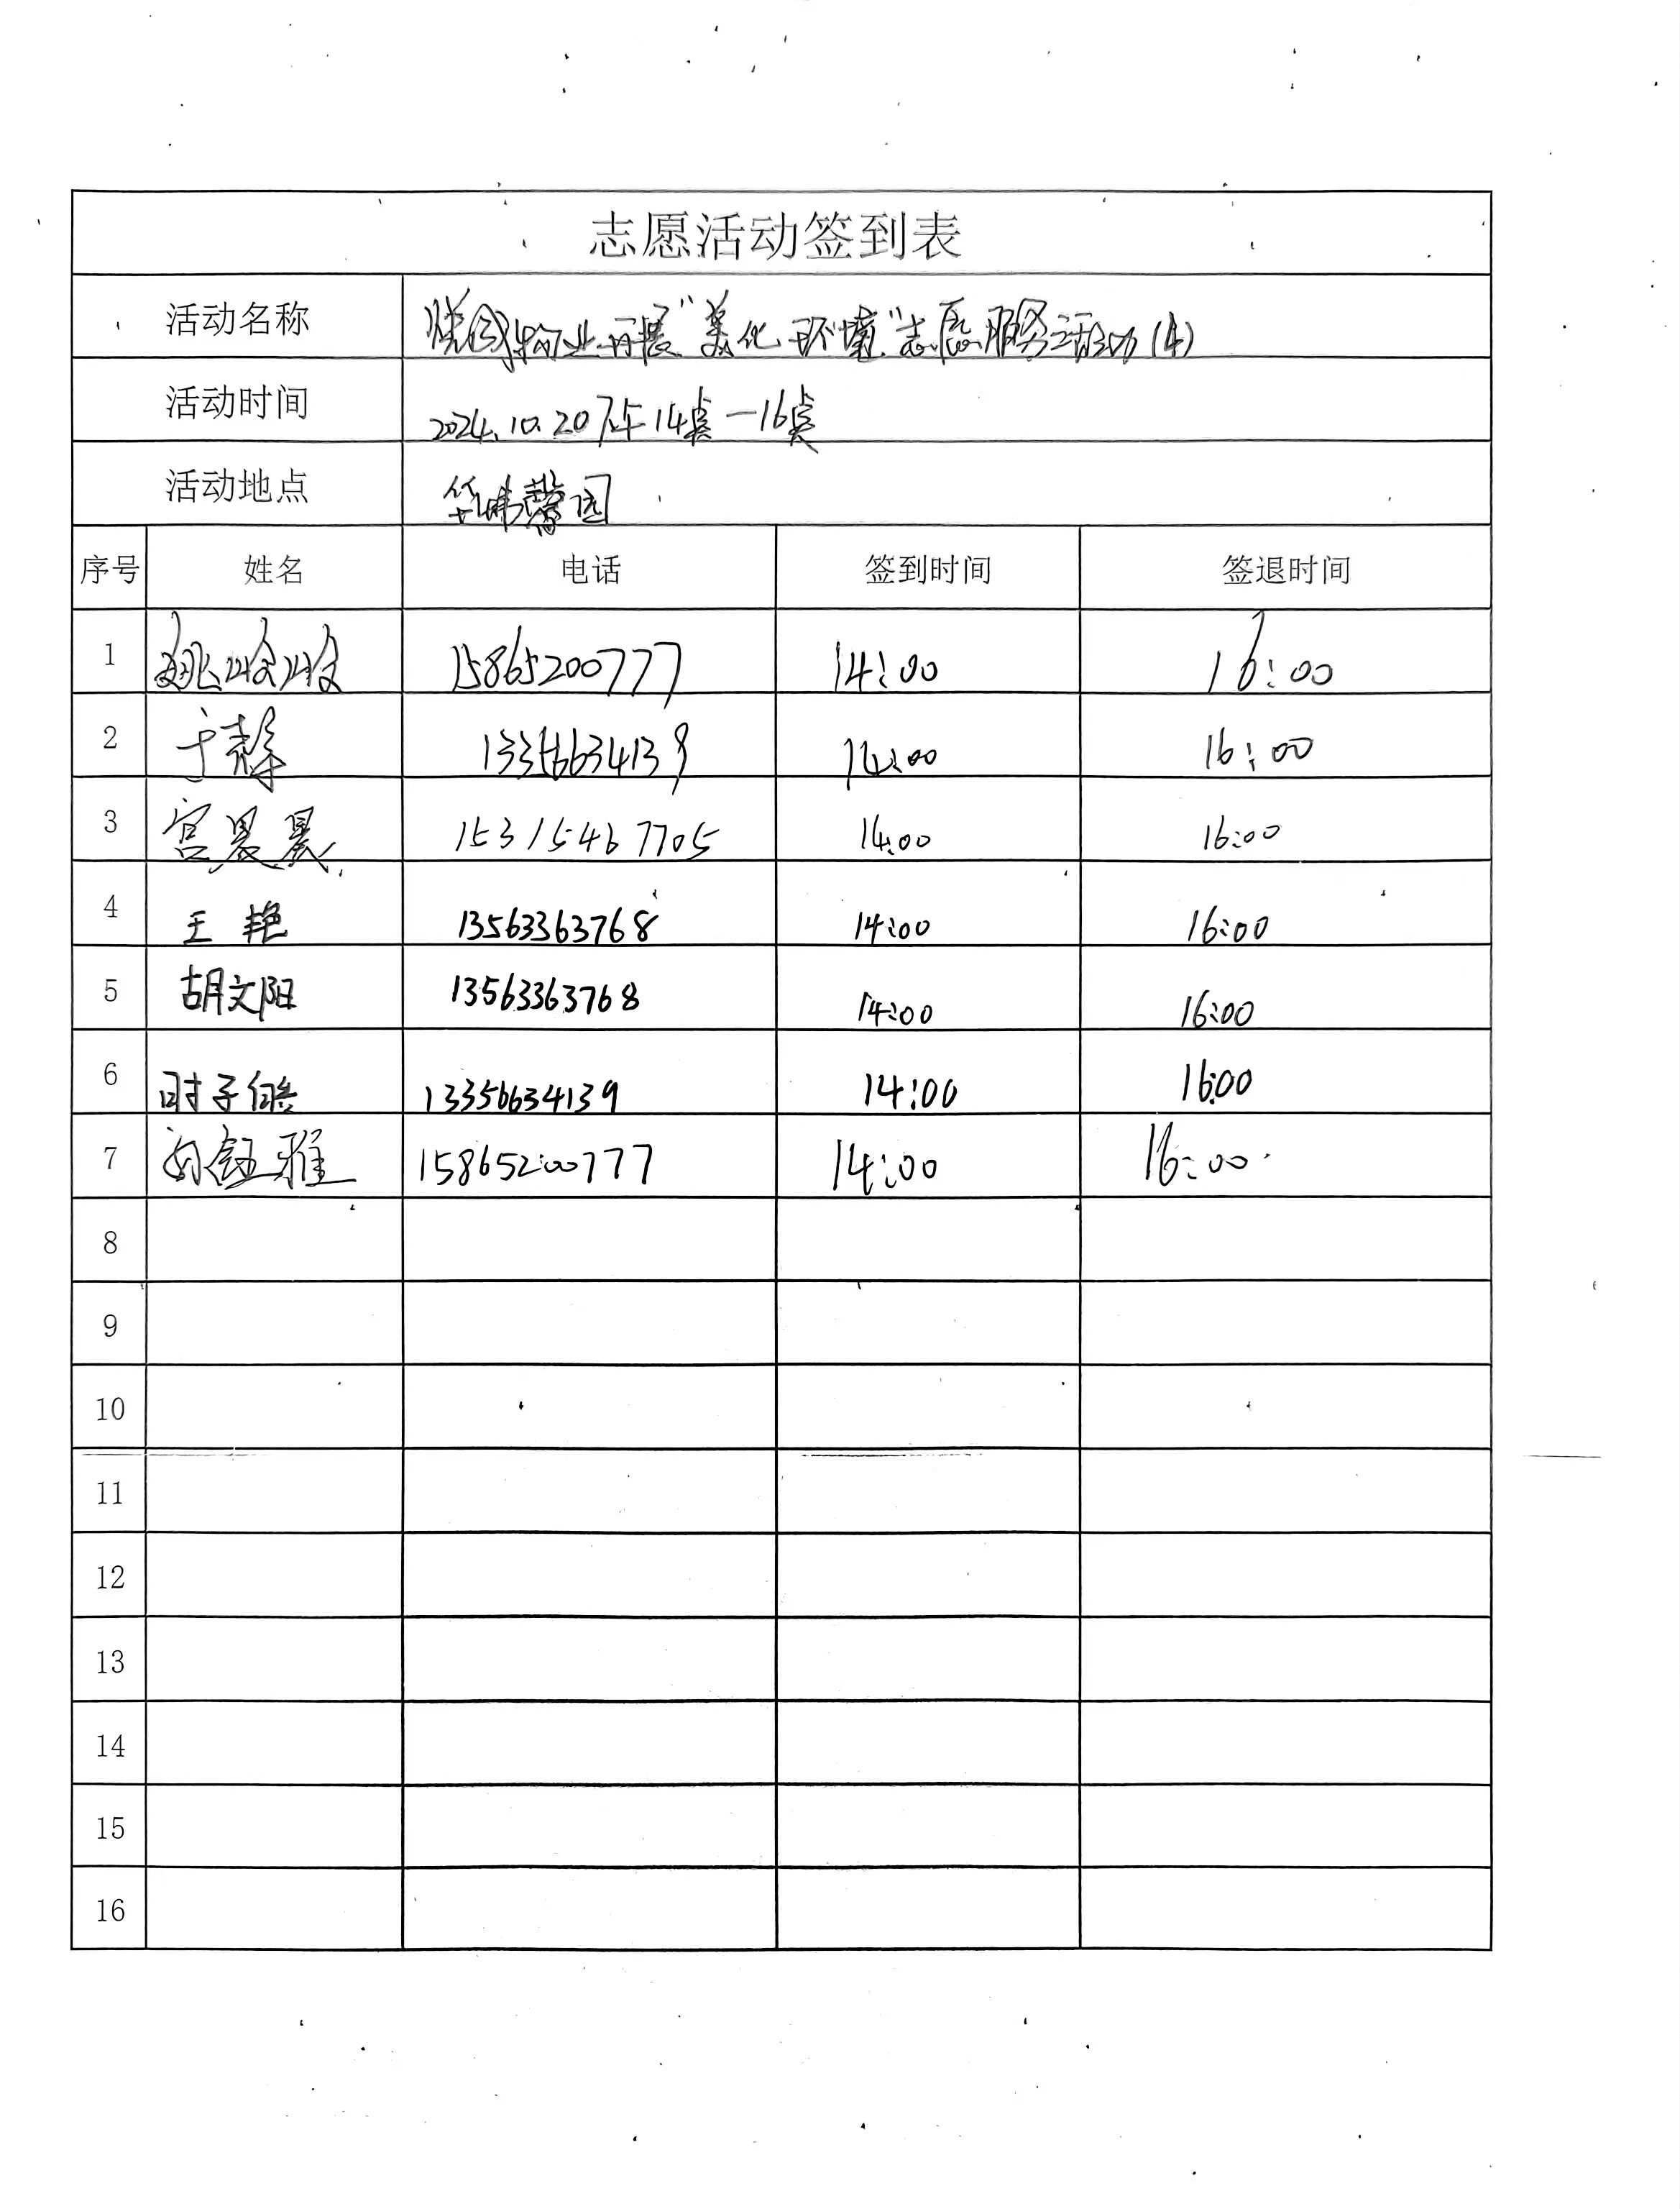 志愿活动签到表
活动名称 物业开展“美化环境”志愿服务活动(4)
活动时间 2024.10.20下午14点—16点
活动地点 华炜馨园
序号 姓名 电话 签到时间 签退时间
1 姚姣姣 15865200777 14:00 16:00
2 于 13356634139 14:00 16:00
3 宫晨晨 15315467705 14:00 16:00
4 王艳 13563363768 14:00 16:00
5 胡文阳 13563363768 14:00 16:00
6 时子皓 13356634139 14:00 16:00
7 钰雅 15865200777 14:00 16:00
8
9
10
11
12
13
14
15
16